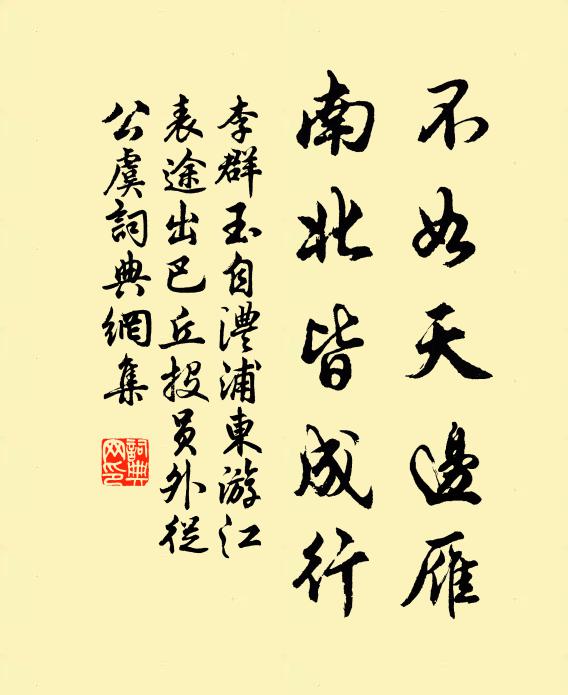 不如天邊雁
南北皆成行
李群玉自澧浦東游江
表途出巴丘投員外從
公虞詞典網集
詞典網印